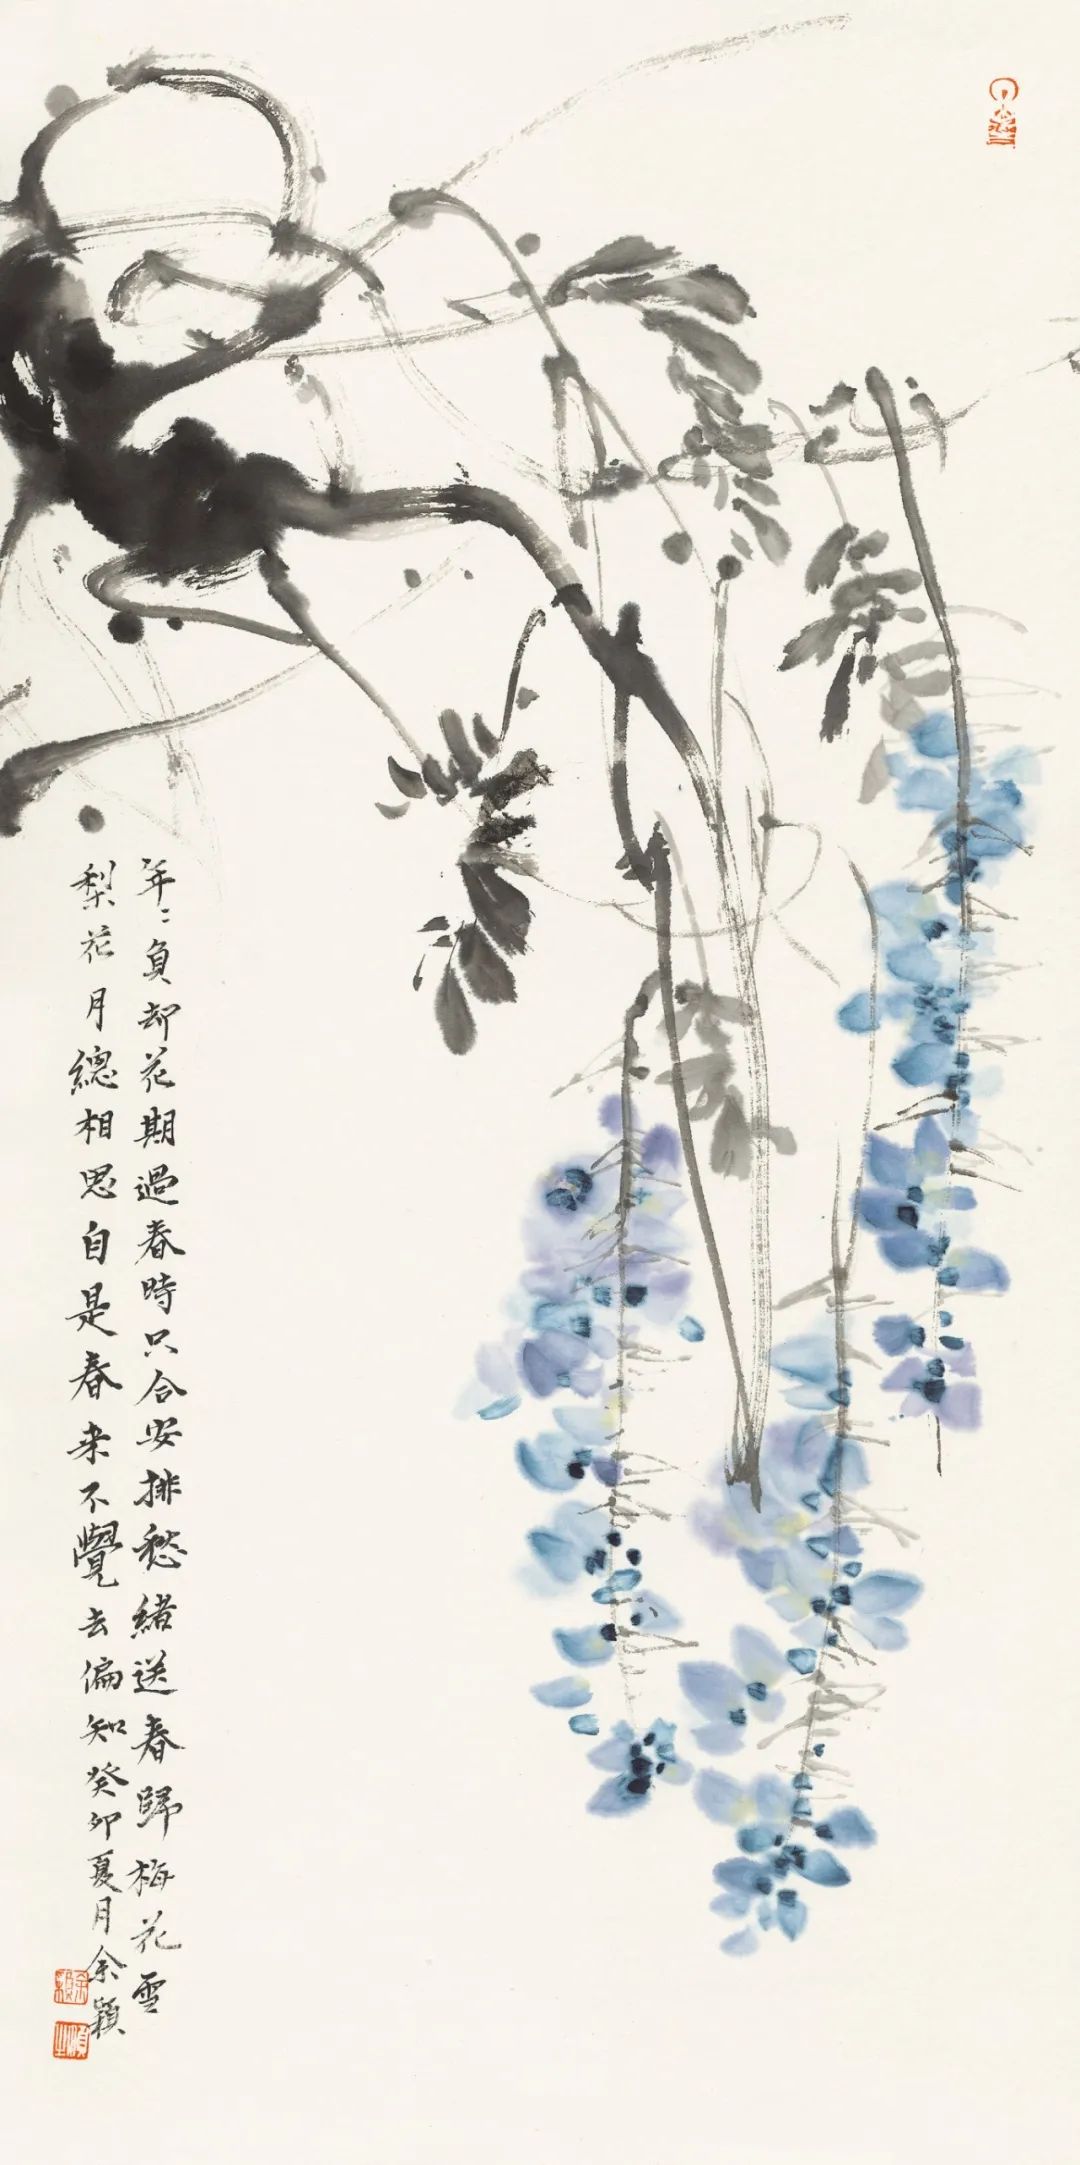 年〻負却花期過春時只合安排愁緒送春歸梅花雪
梨花月總相思自是春来不覺去偏知癸卯夏月余穎